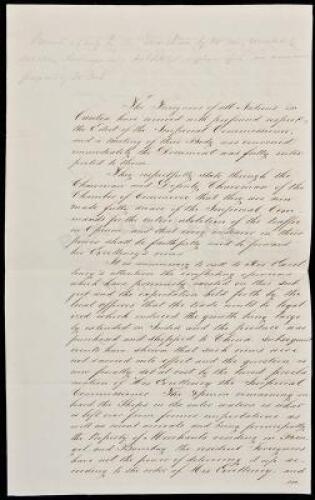 The Foreigners of all Nations in
Canton have received with profound respect
the Edict of the Imperial Commissioner,
and a meeting of their Body was convened
immediately the Document was fully inter
preted to them.
They respectfully state through the
Chairman and Deputy Chairman of the
Chamber of Commerce that they are now
made fully aware of the Imperial Com
mands for the entire abolition of the traffic
in Opium and that every endeavor in their
power shall be faithfully used to forward
his Excellency's views.
It is necessary to call to His Excel
lency's attention the conflicting opinions
which have formerly existed on this sub
ject and the expectation held forth by the
local officers that the trade would be legal
ized which induced the growth being large
ly extended in India and the produce was
purchased and shipped to China. Subsequent
events have shown that such views were
not carried into effect and the question is
now finally set at rest by the proclam
mation of His Excellency the Imperial
Commissioner. The Opium remaining on
board the Ships in the outer waters is what
is left over from former importations as
well as recent arrivals and being principally
the Property of Merchants residing in Ben
gal and Bombay the resident Foreigners
have not the power of delivering it up ac
cording to the order of His Excellency, and